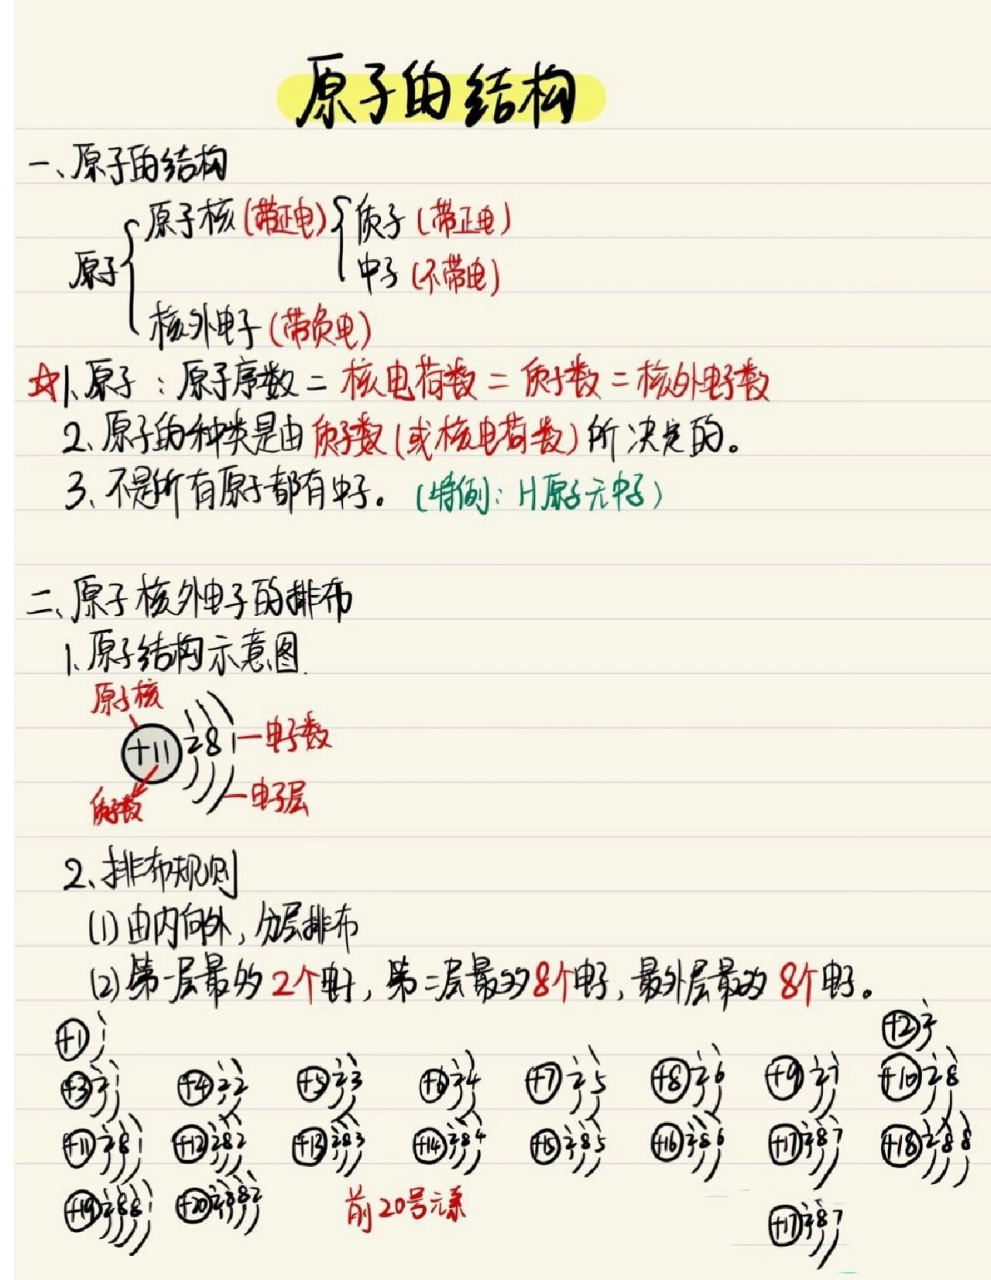 原子的结构
一、原子的结构
原子核(带正电) 质子(带正电)
原子 中子(不带电)
核外电子(带负电)
☆1.原子：原子序数＝核电荷数＝质子数＝核外电子数
2、原子的种类是由质子数(或核电荷数)所决定的。
3、不是所有原子都有中子。(特例：H原子无中子)
二、原子核外电子的排布
1.原子结构示意图.
原子核
+11 2 8 1 电子数
质子数 电子层
2、排布规则
(1)由内向外,分层排布
(2)第一层最多2个电子,第二层最多8个电子,最外层最多8个电子。
+1 1 +2 2
+3 2 1 +4 2 2 +5 2 3 +6 2 4 +7 2 5 +8 2 6 +9 2 7 +10 2 8
+11 2 8 1 +12 2 8 2 +13 2 8 3 +14 2 8 4 +15 2 8 5 +16 2 8 6 +17 2 8 7 +18 2 8 8
+19 2 8 8 1 +20 2 8 8 2 前20号元素
+17 2 8 7